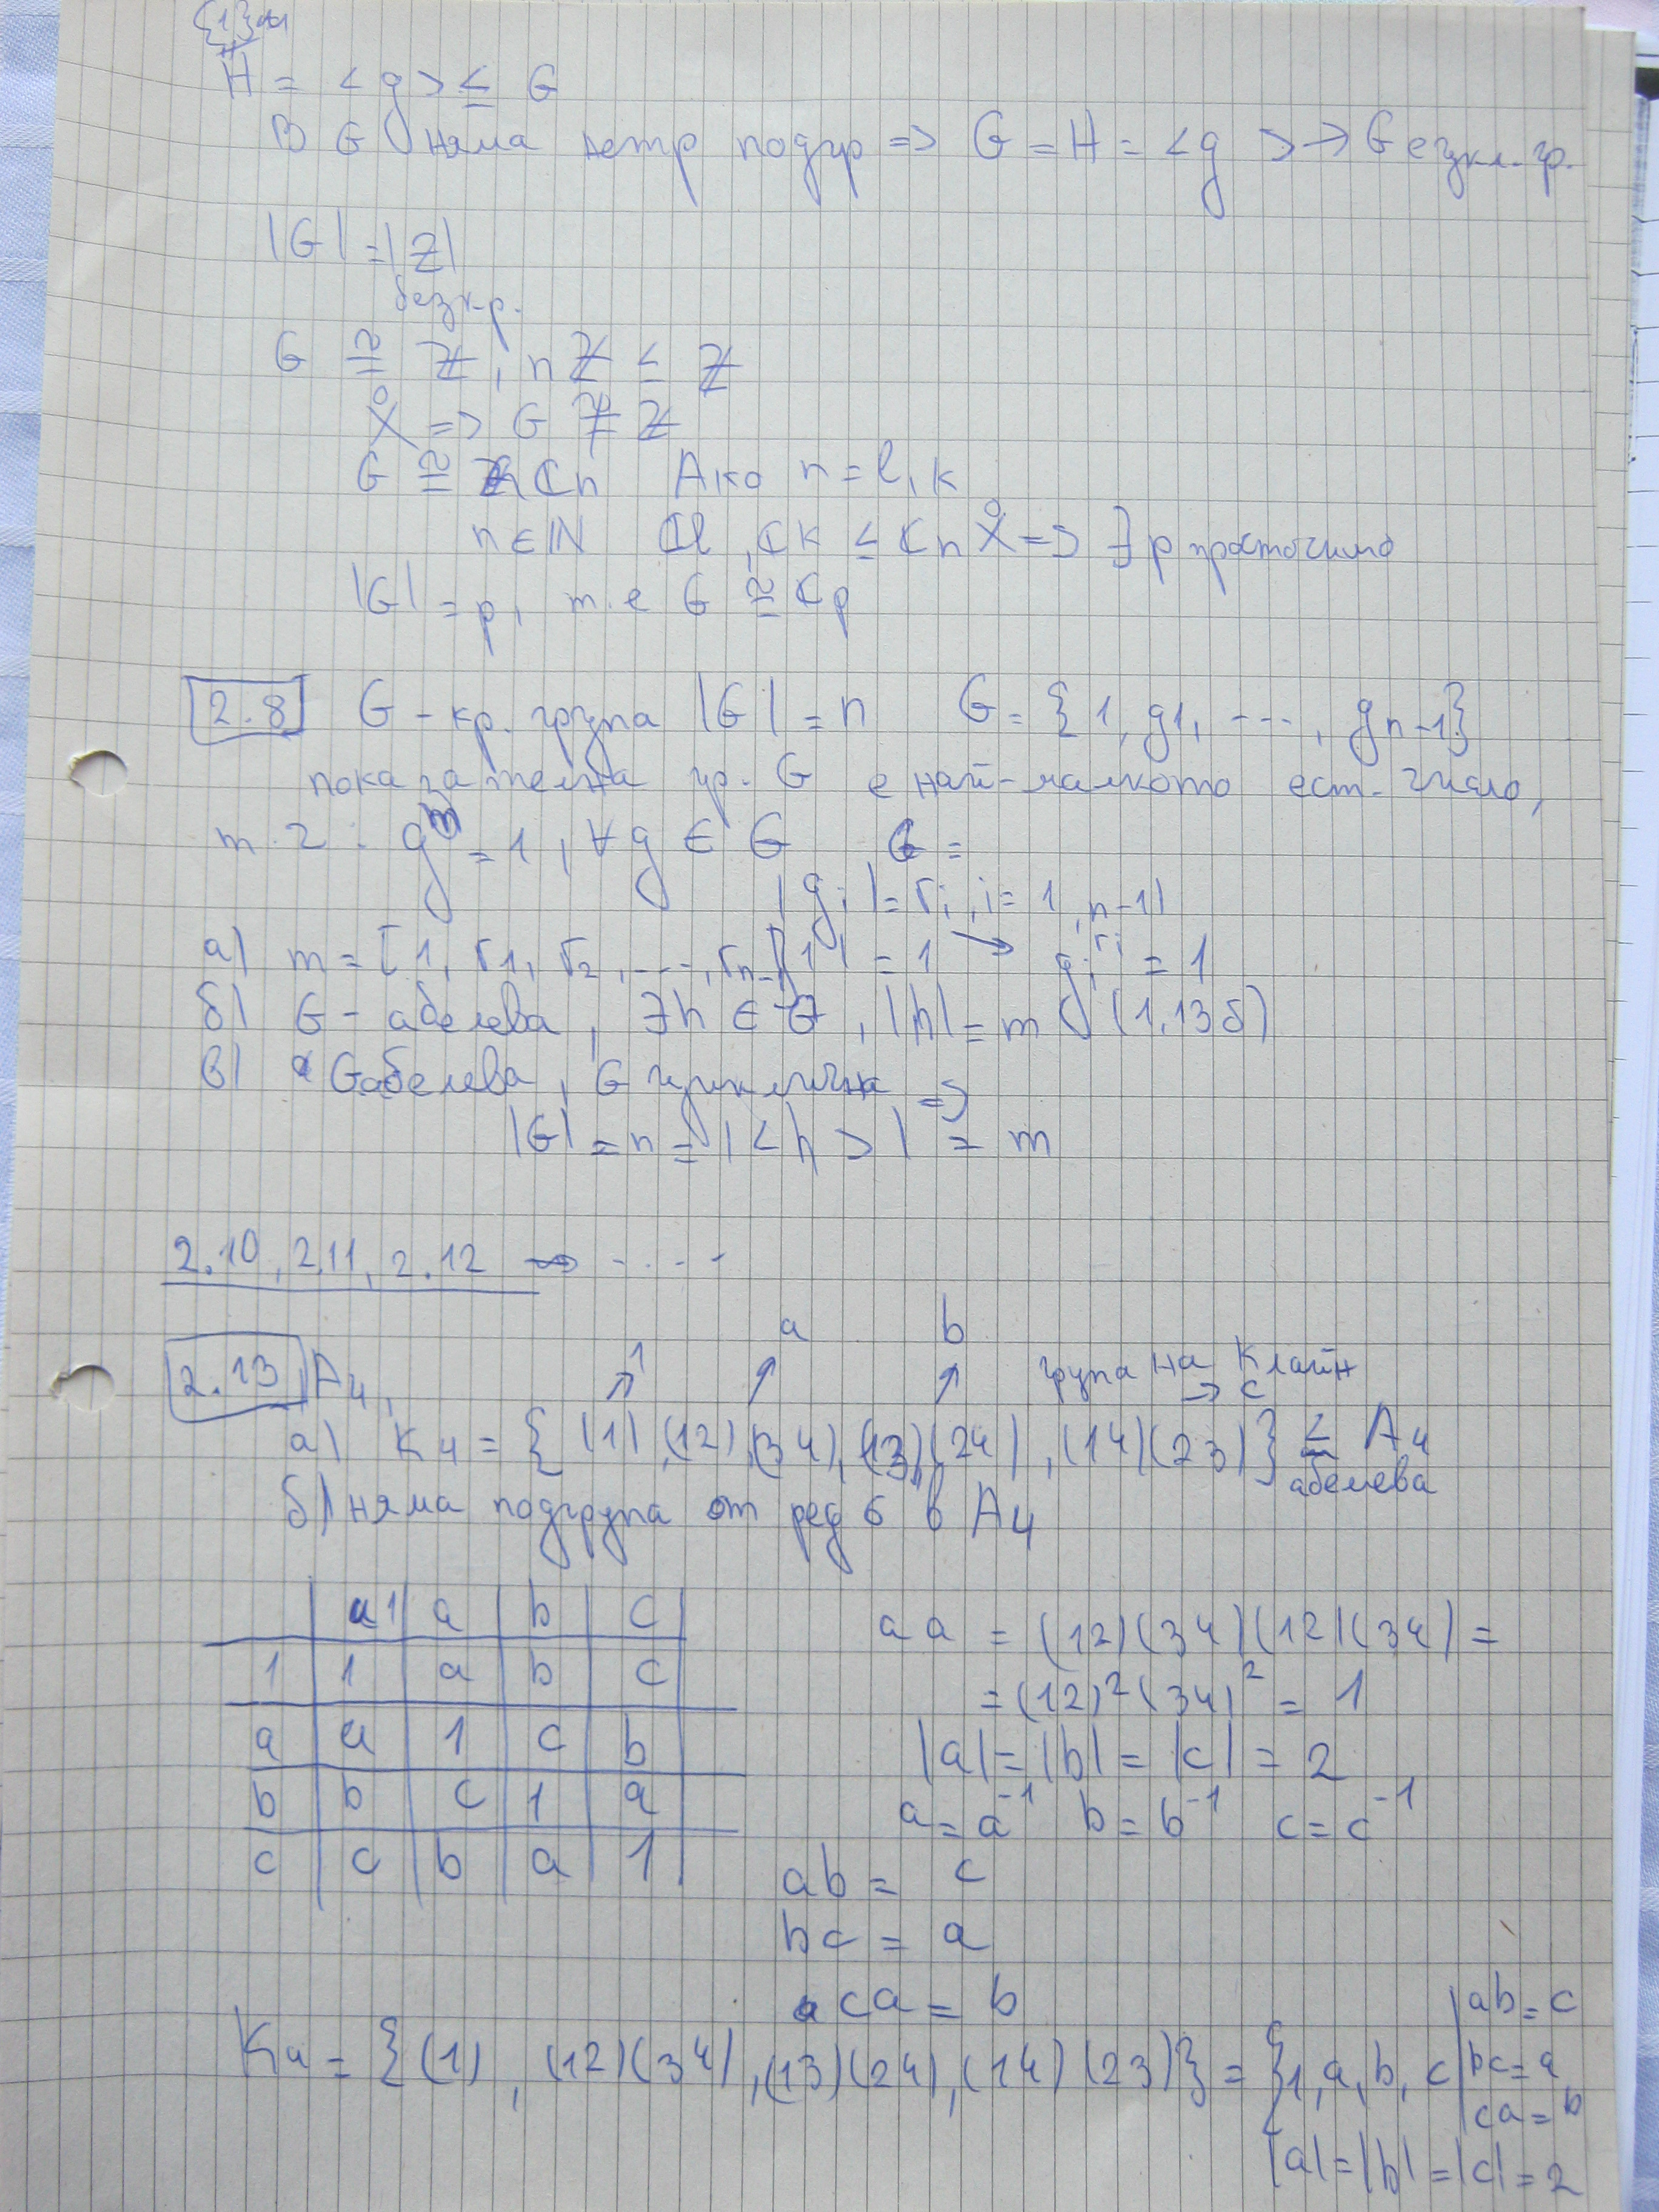 {1} ≠
H = <g> ≤ G
В G няма нетр подгр => G = H = <g> → G е цикл. гр.
|G| = |Z|
безкр.
G ≅ Z, nZ ≤ Z
X => G ≇ Z
G ≅ Cn Ако n = l, k
n ∈ N Cl, Ck ≤ Cn X => ∃ p просто число
|G| = p, т.е G ≅ Cp
2.8 G - кр. група |G| = n G = {1, g1, ..., gn-1}
показателна гр. G е най-малкото ест. число,
m : g^m = 1, ∀g ∈ G, G =
|gi| = ri, i = 1, n-1
а) m = [1, r1, r2, ..., rn-1] 1^1 = 1 → gi^ri = 1
б) G - абелева, ∃h ∈ G, |h| = m (1.13б)
в) G абелева, G циклична =>
|G| = n = |<h>| = m
2.10, 2.11, 2.12 → ....
a b
1 група на Клайн
2.13 A4, → c
а) K4 = {(1), (12), (34), (13)(24), (14)(23)} ≤ A4
абелева
б) няма подгрупа от ред 6 в A4
1 a b c
1 1 a b c
a a 1 c b
b b c 1 a
c c b a 1
aa = (12)(34)(12)(34) =
= (12)²(34)² = 1
|a| = |b| = |c| = 2
a = a⁻¹ b = b⁻¹ c = c⁻¹
ab = c
bc = a
ca = b
K4 = {(1), (12)(34), (13)(24), (14)(23)} = {1, a, b, c | ab = c
bc = a
ca = b
|a| = |b| = |c| = 2